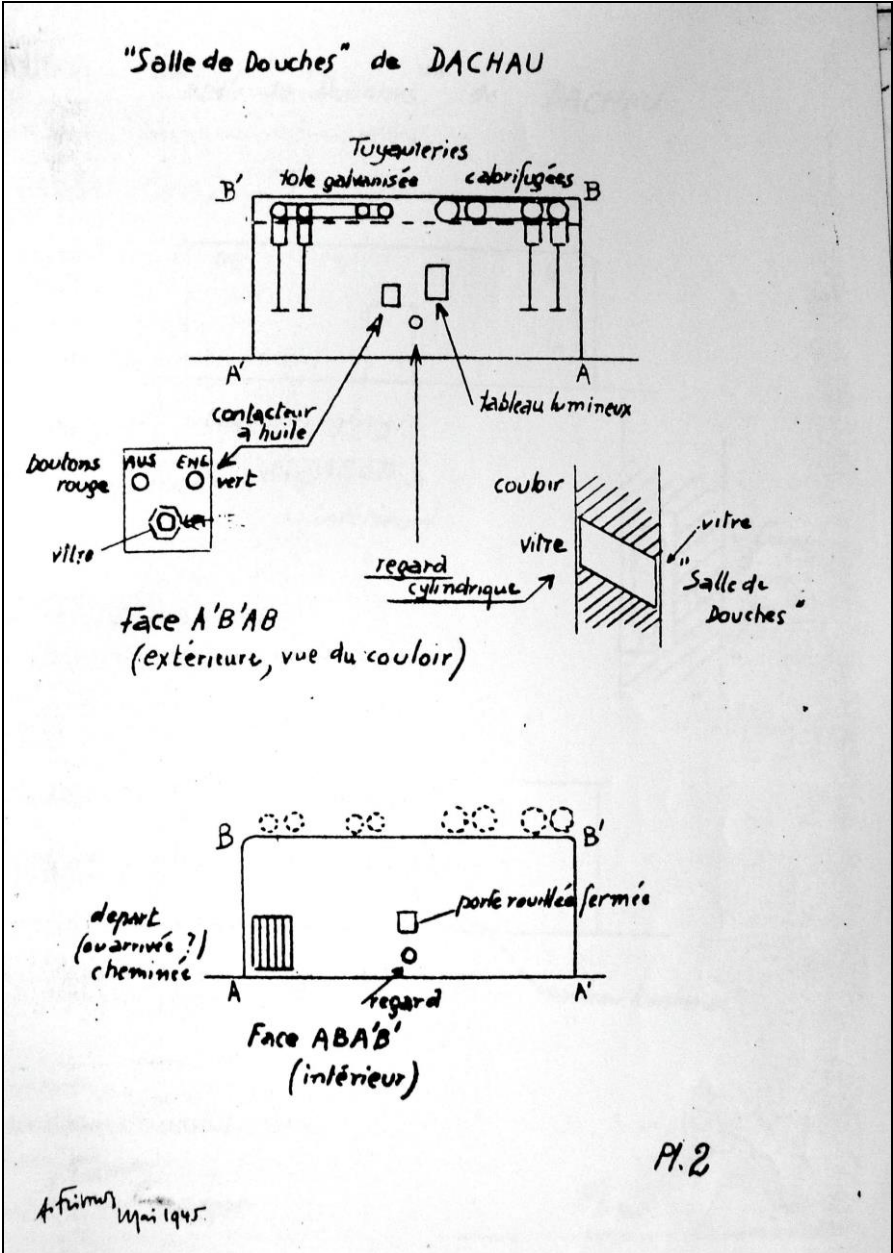 "Salle de Douches" de DACHAU
Tuyauteries
tole galvanisée calorifugées
B' B
A' A
contacteur
à huile
tableau lumineux
boutons
rouge
AUS EIN
vert
vitre
regard
cylindrique
couloir
vitre
vitre
"Salle de
Douches"
Face A'B'AB
(extérieure, vue du couloir)
B B'
porte rouillée fermée
depart
(ou arrivée ?)
cheminée
A A'
regard
Face ABA'B'
(intérieur)
Pl.2
Mai 1945.